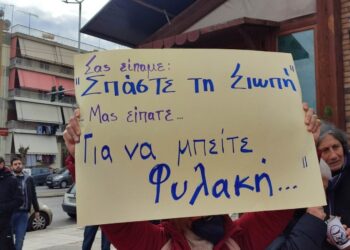 Σας είπαμε:
"Σπάστε τη Σιωπή"
Μας είπατε...
Για να μπείτε
Φυλακή...